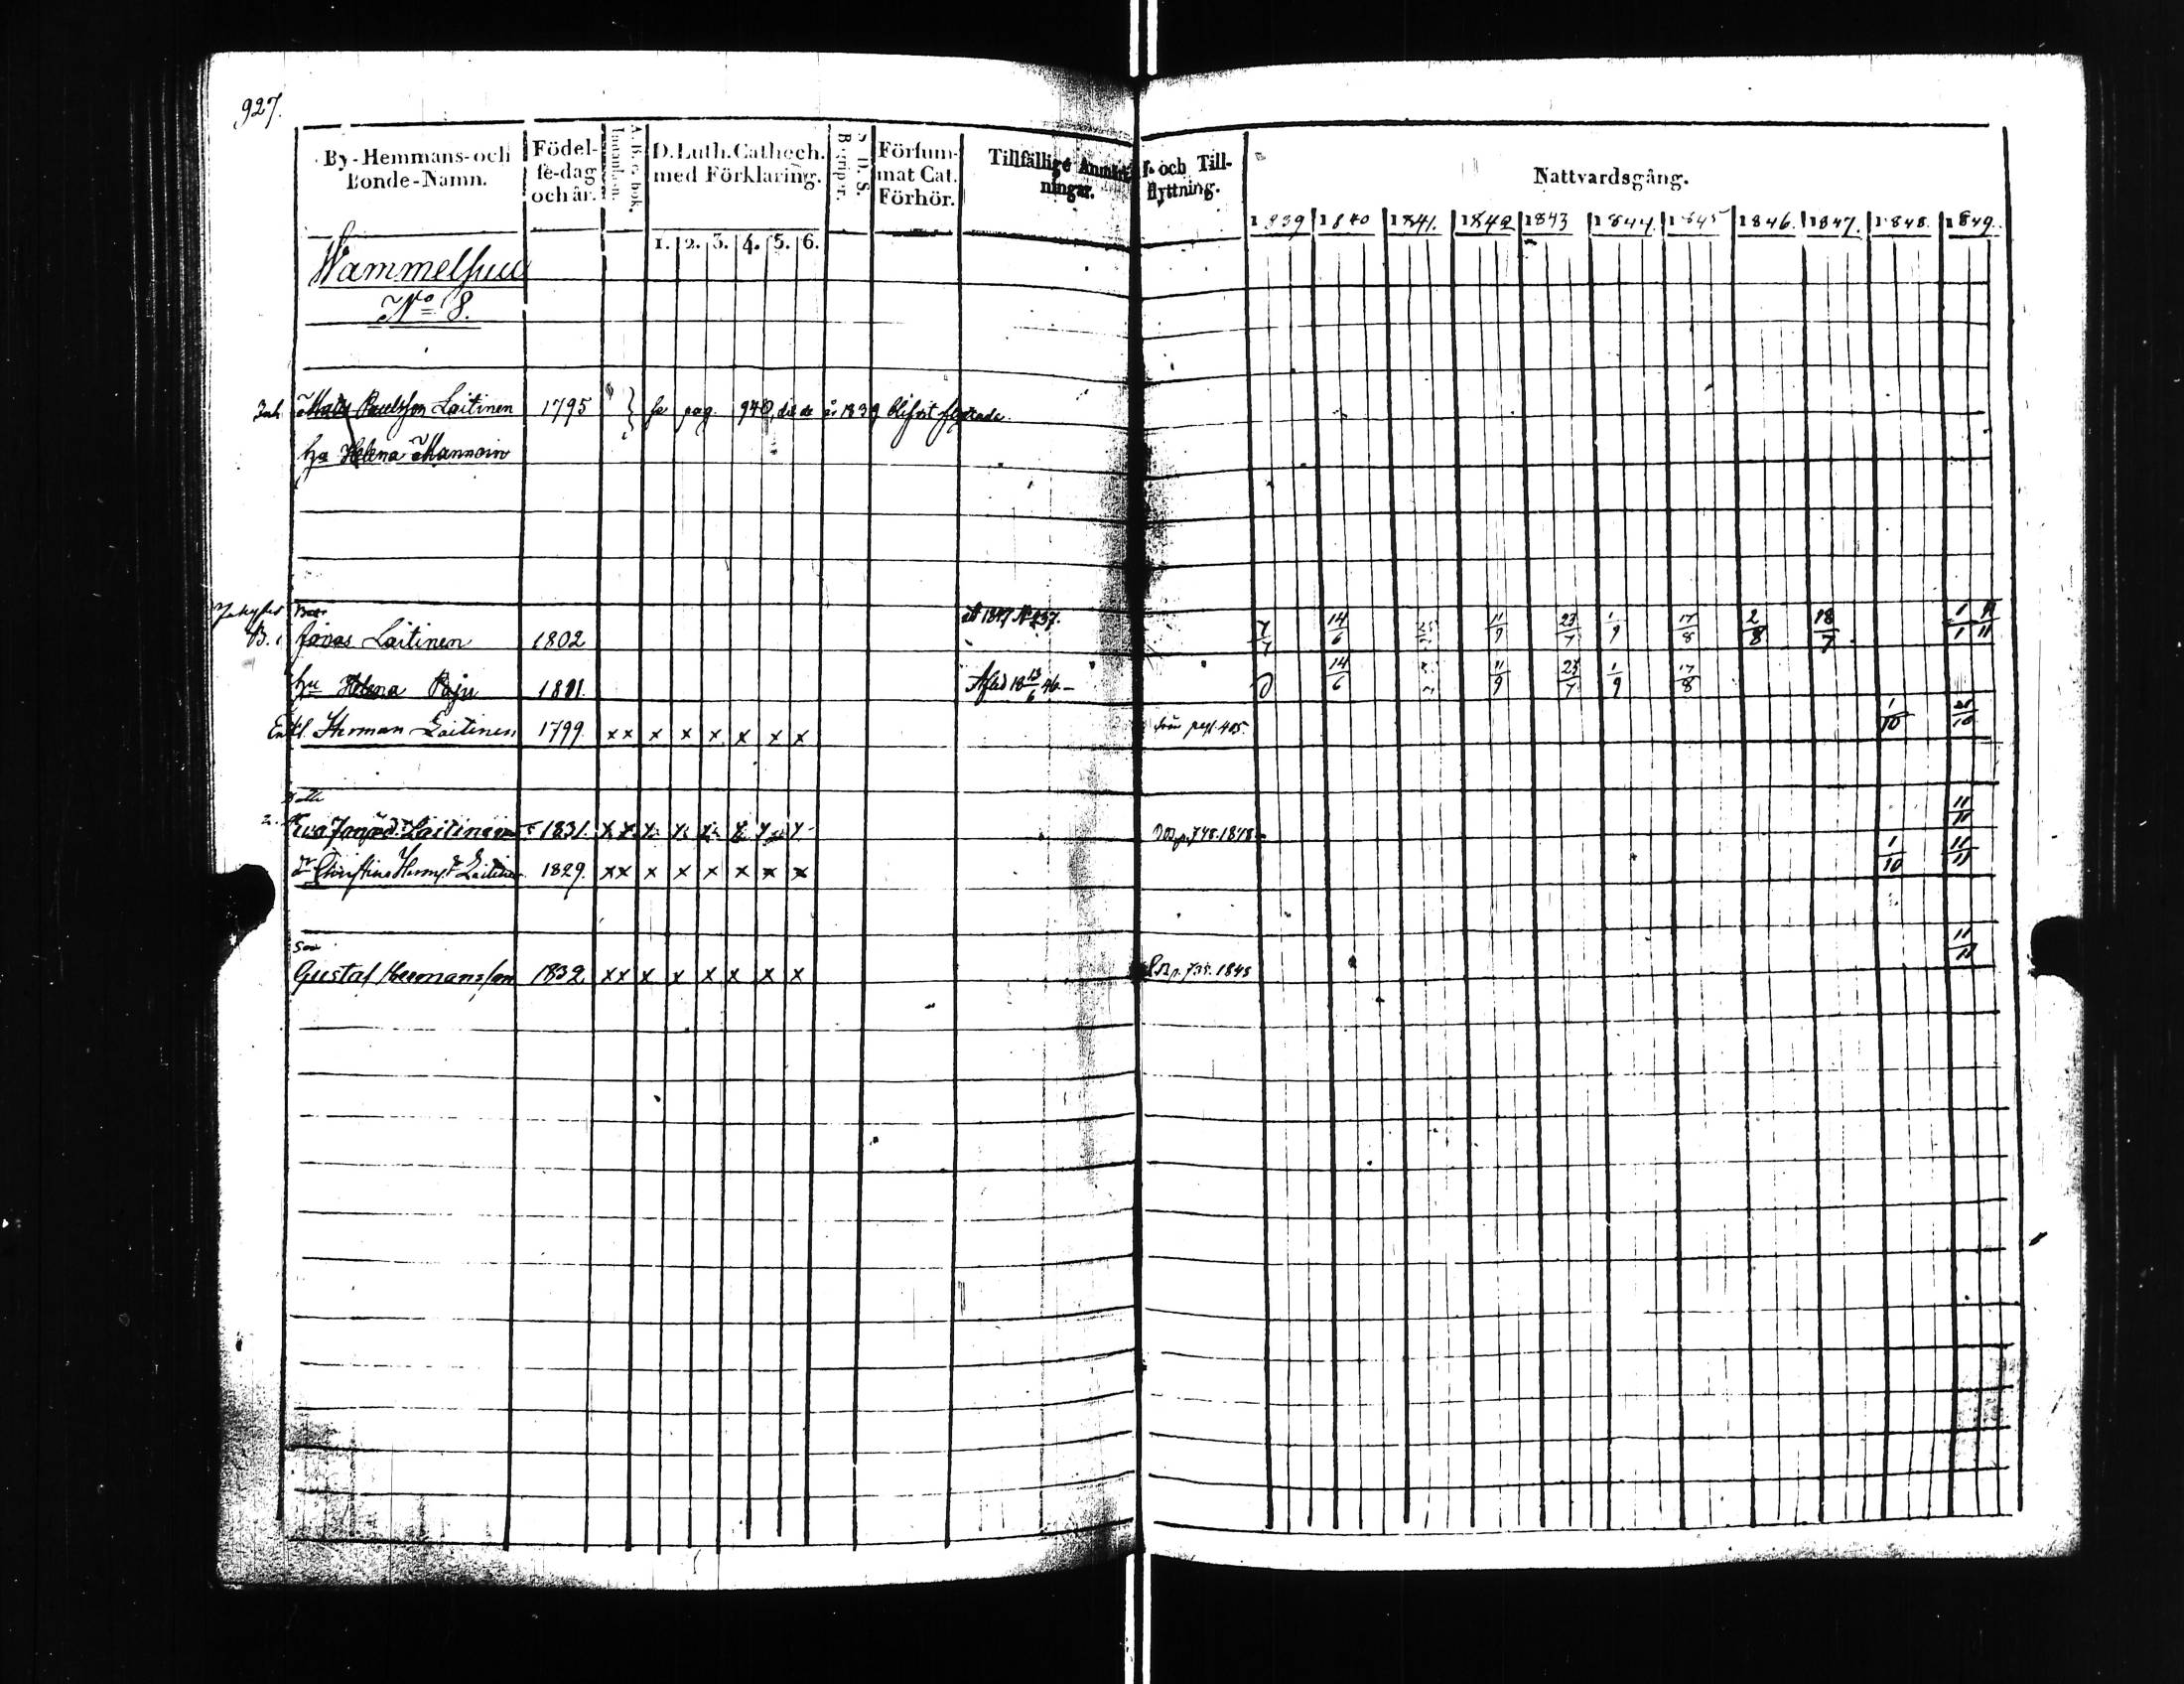 927.
By-Hemmans-och Bonde-Namn.
Födel-se-dag och år.
A. B. C. bok.
D. Luth. Cathech. med Förklaring.
D. S.
Försum-mat Cat. Förhör.
Tillfällige Anmärk-ningar.
f- och Till-flyttning.
Nattvardsgång.
1839 1840 1841. 1842 1843 1844. 1845 1846. 1847. 1848. 1849.
1. 2. 3. 4. 5. 6.
Wammelsuu
No 8.
Inh. Mats Paulsson Laitinen 1795 se pag. 940, år 1839
hu Helena Mannoin
B. Laitinen 1802 7/7 14/6 11/9 23/7 1/9 17/8 2/8 18/7 1/1 11/11
hu Helena 1801. Afled 18 13/6 46.- 14/6 11/9 23/7 1/9 17/8
Enkl. Herman Laitinen 1799 x x x x x x x x från pag. 405. 1/10 28/10
2. Eva Laitinen 1831. x x x x x x x x p. 748. 1848 11/11
dr Christina Laitinen 1829. x x x x x x x x 1/10 11/11
Son
Gustaf Hermansson 1832 x x x x x x x x p. 735. 1848 11/11